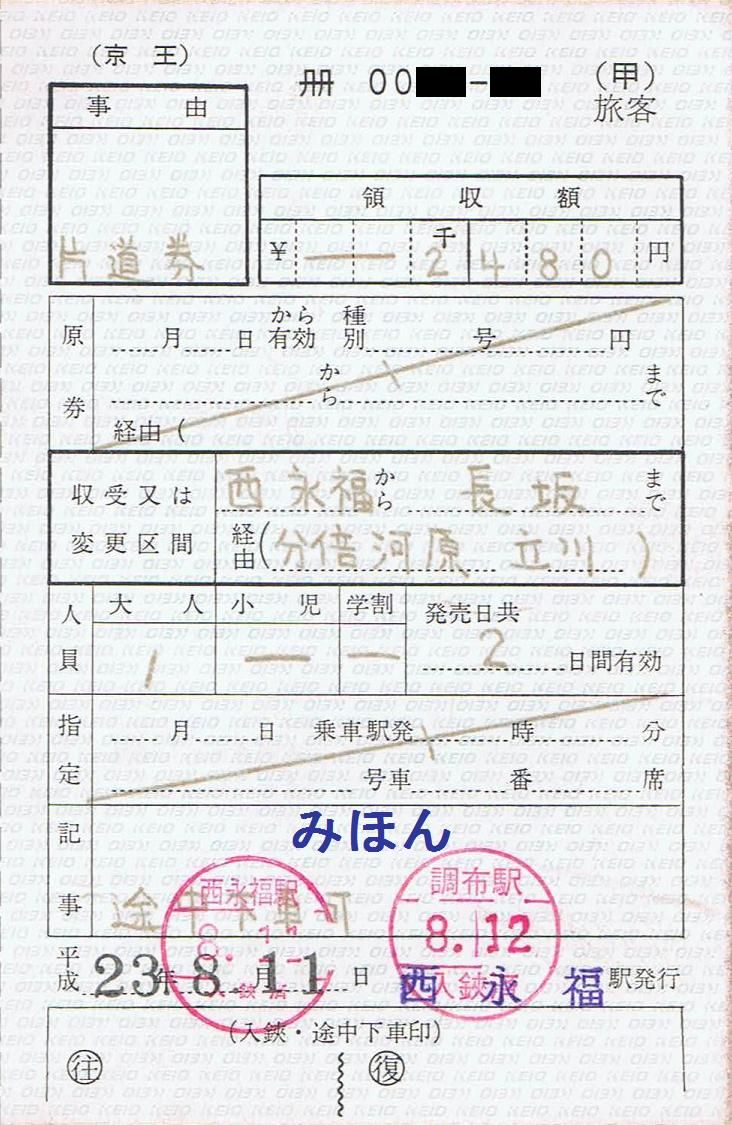 (京王)
冊 00 - (甲)
旅客
事由
片道券
領収額
¥ 一 千 2 4 8 0 円
原券 月 日 から有効 種別 号 円
から まで
経由(
収受又は変更区間 西永福 から 長坂 まで
経由(分倍河原 立川)
人員 大人 小児 学割 発売日共
1 ― ― 2 日間有効
指定 月 日 乗車駅発 時 分
号車 番 席
みほん
記事
西永福駅 調布駅
8.12
入鋏 入鋏
平成 23 年 8. 月 11 日 西永福 駅発行
(入鋏・途中下車印)
往 復